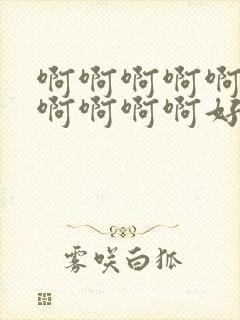 啊啊啊啊啊
啊啊啊啊好
雾咲白狐